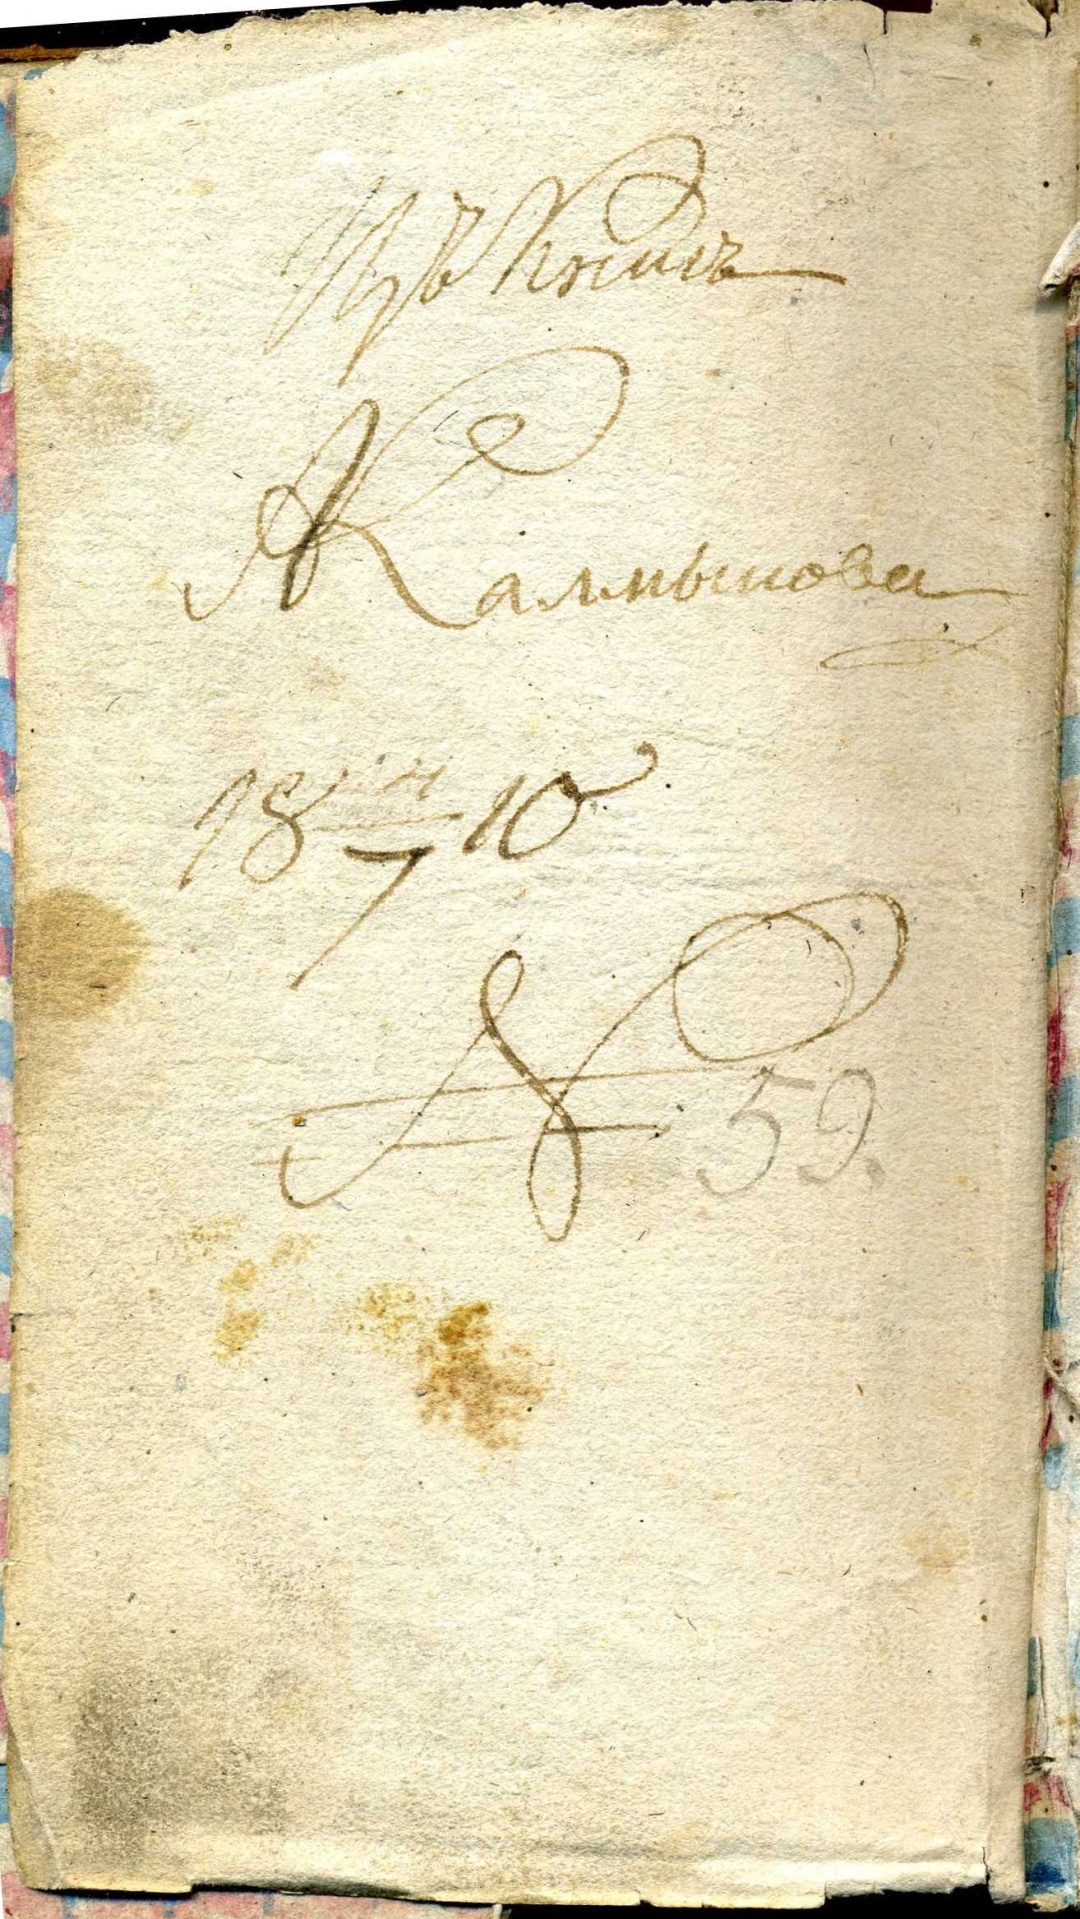 Изъ Книгъ
А Калмыкова
18 10
7
№ 59.